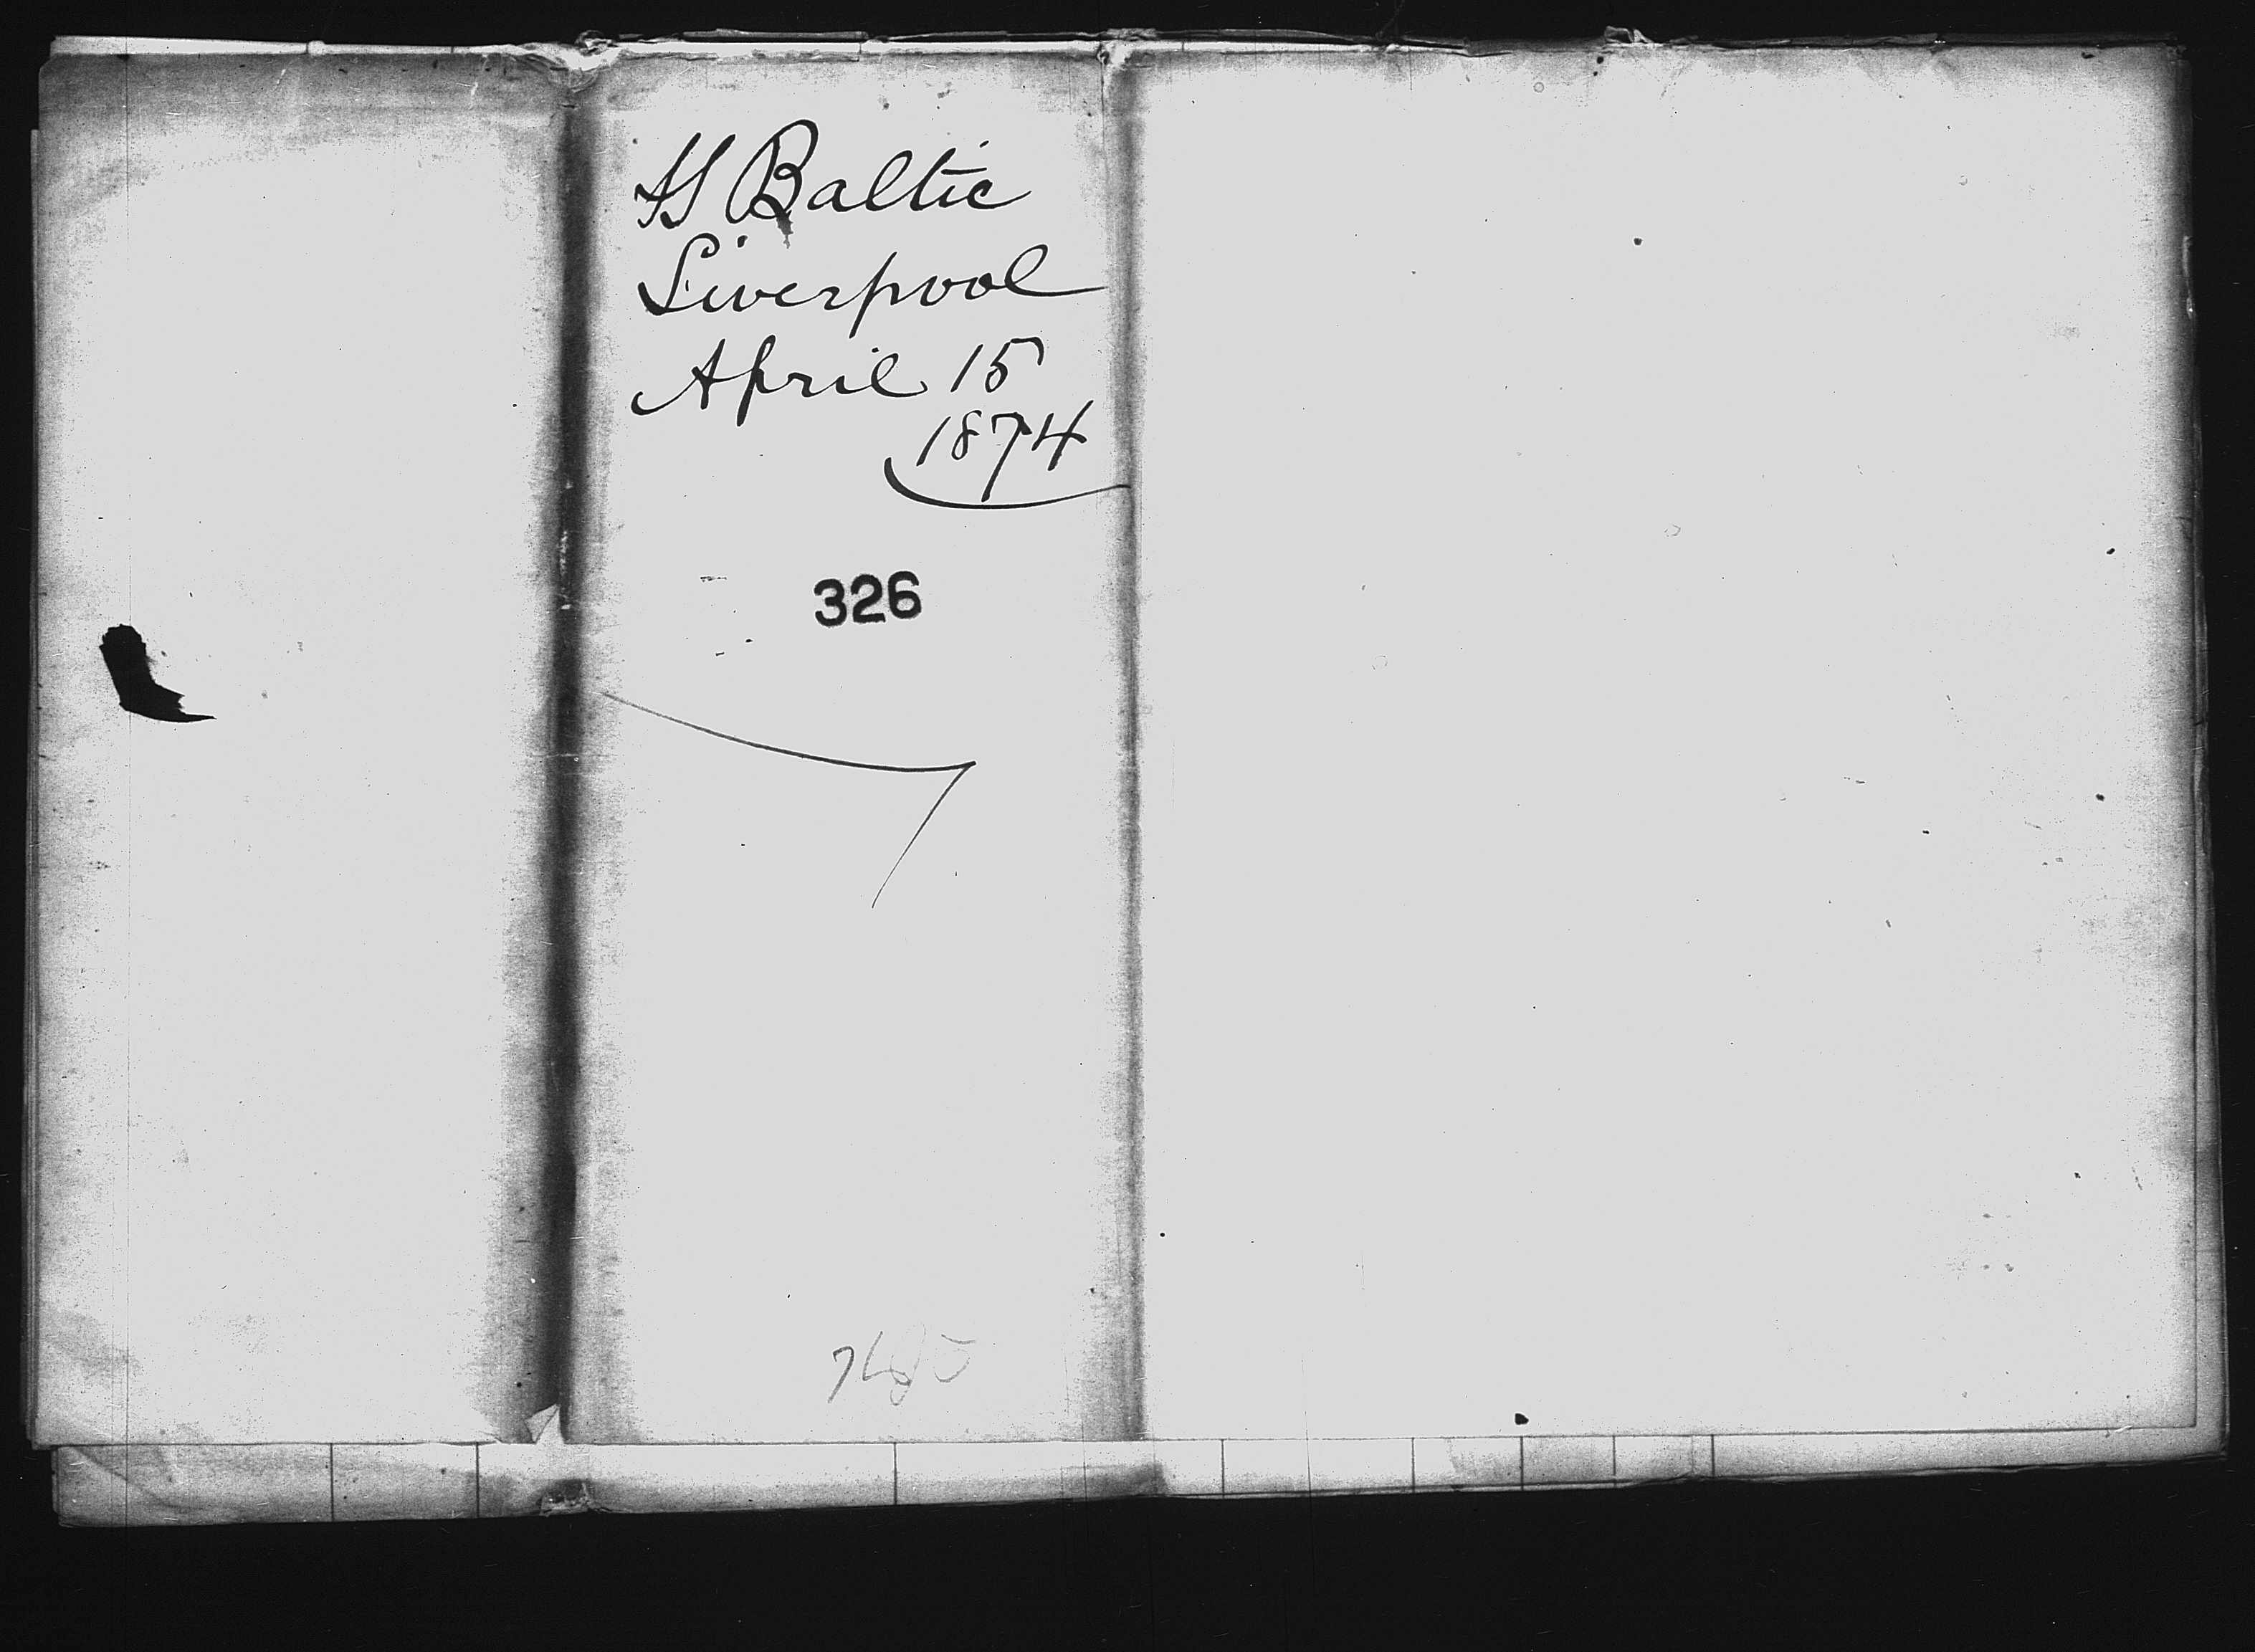 SS Baltic
Liverpool
April 15
1874
326